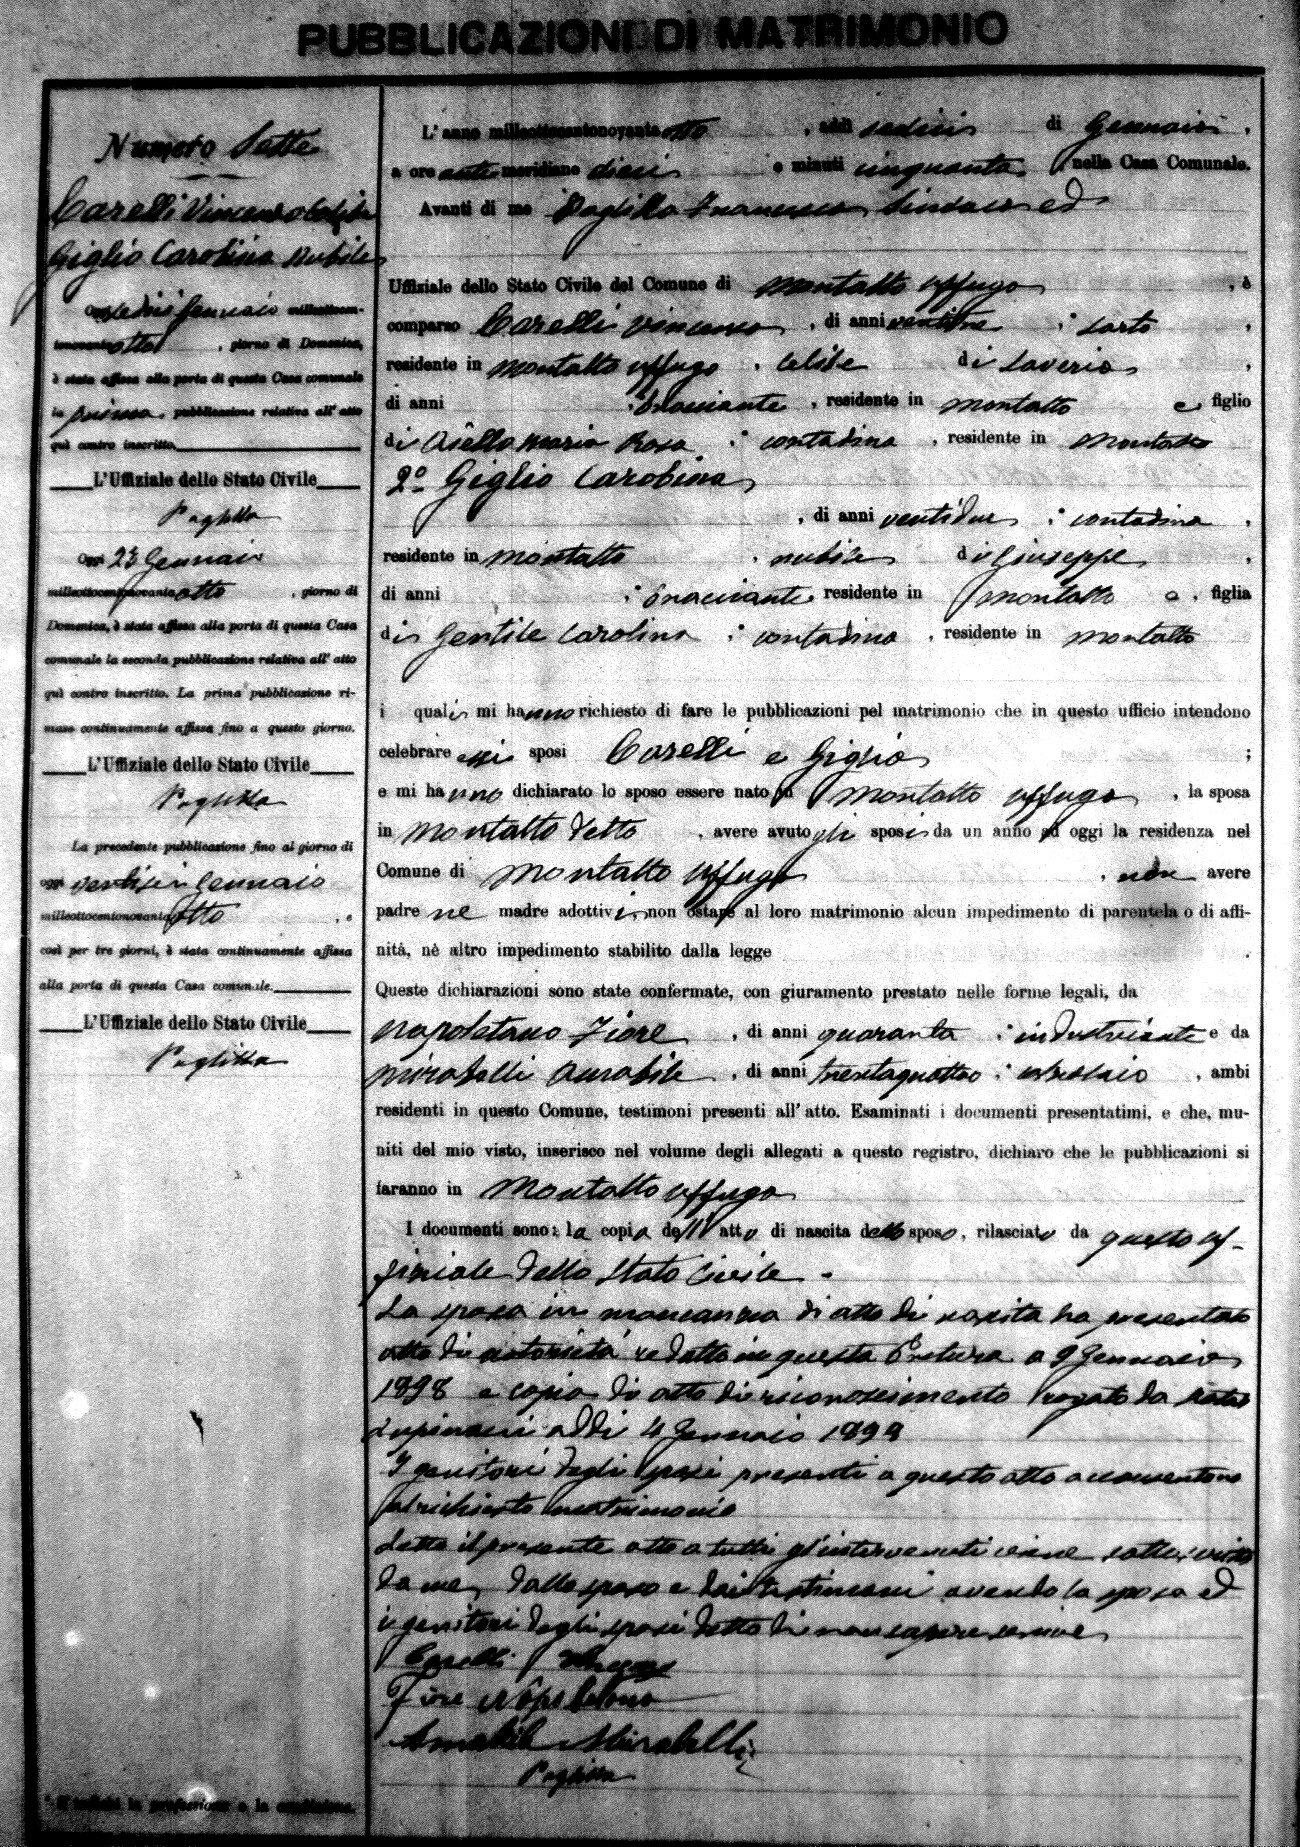 PUBBLICAZIONI DI MATRIMONIO
Numero Sette
Carelli Vincenzo celibe
Giglio Carolina nubile
Oggi sedici Gennaio milleottocen-
tonovantaotto, giorno di Domenica,
è stata affissa alla porta di questa Casa comunale
la prima pubblicazione relativa all'atto
quì contro inscritto.
L'Uffiziale dello Stato Civile
Oggi 23 Gennaio
milleottocentonovantaotto, giorno di
Domenica, è stata affissa alla porta di questa Casa
comunale la seconda pubblicazione relativa all'atto
quì contro inscritto. La prima pubblicazione ri-
mase continuamente affissa fino a questo giorno.
L'Uffiziale dello Stato Civile
La precedente pubblicazione fino al giorno di
oggi ventisei Gennaio
milleottocentonovantaotto, e
così per tre giorni, è stata continuamente affissa
alla porta di questa Casa comunale.
L'Uffiziale dello Stato Civile
L'anno milleottocentonovantaotto, addì sedici di Gennaio,
a ore antimeridiane dieci e minuti cinquanta, nella Casa Comunale.
Avanti di me Francesco Sindaco ed
Uffiziale dello Stato Civile del Comune di Montalto Uffugo, è
comparso Carelli Vincenzo, di anni ventitre, sarto,
residente in Montalto Uffugo, celibe di Saverio,
di anni , bracciante, residente in Montalto e figlio
di Aiello Maria Rosa, contadina, residente in Montalto
2º Giglio Carolina
, di anni ventidue, contadina,
residente in Montalto, nubile di Giuseppe,
di anni , bracciante, residente in Montalto e, figlia
di Gentile Carolina, contadina, residente in Montalto
i quali mi hanno richiesto di fare le pubblicazioni pel matrimonio che in questo ufficio intendono
celebrare essi sposi Carelli e Giglio;
e mi hanno dichiarato lo sposo essere nato in Montalto Uffugo, la sposa
in Montalto detto, avere avuto gli sposi da un anno ad oggi la residenza nel
Comune di Montalto Uffugo, non avere
padre ne madre adottivi, non ostare al loro matrimonio alcun impedimento di parentela o di affi-
nità, nè altro impedimento stabilito dalla legge.
Queste dichiarazioni sono state confermate, con giuramento prestato nelle forme legali, da
Napoletano Fiore, di anni quaranta, industriante e da
Mirabelli Amabile, di anni trentaquattro, , ambi
residenti in questo Comune, testimoni presenti all'atto. Esaminati i documenti presentatimi, e che, mu-
niti del mio visto, inserisco nel volume degli allegati a questo registro, dichiaro che le pubblicazioni si
faranno in Montalto Uffugo
I documenti sono: la copia dell'atto di nascita dello sposo, rilasciato da questo uf-
ficiale dello Stato Civile.
La sposa in mancanza di atto di nascita ha presentato
atto di notorietà redatto in questa Pretura a 9 Gennaio
1898 e copia di atto di riconoscimento rogato da Notar
Lupinacci addi 4 Gennaio 1898
I genitori degli sposi presenti a questo atto acconsentono
al richiesto matrimonio
Letto il presente atto a tutti gl'intervenuti viene sottoscritto
da me, dallo sposo e dai testimoni avendo la sposa ed
i genitori degli sposi detto di non sapere scrivere
Carelli Vincenzo
Fiore Napoletano
Amabile Mirabelli
* Si indichi la professione o la condizione.